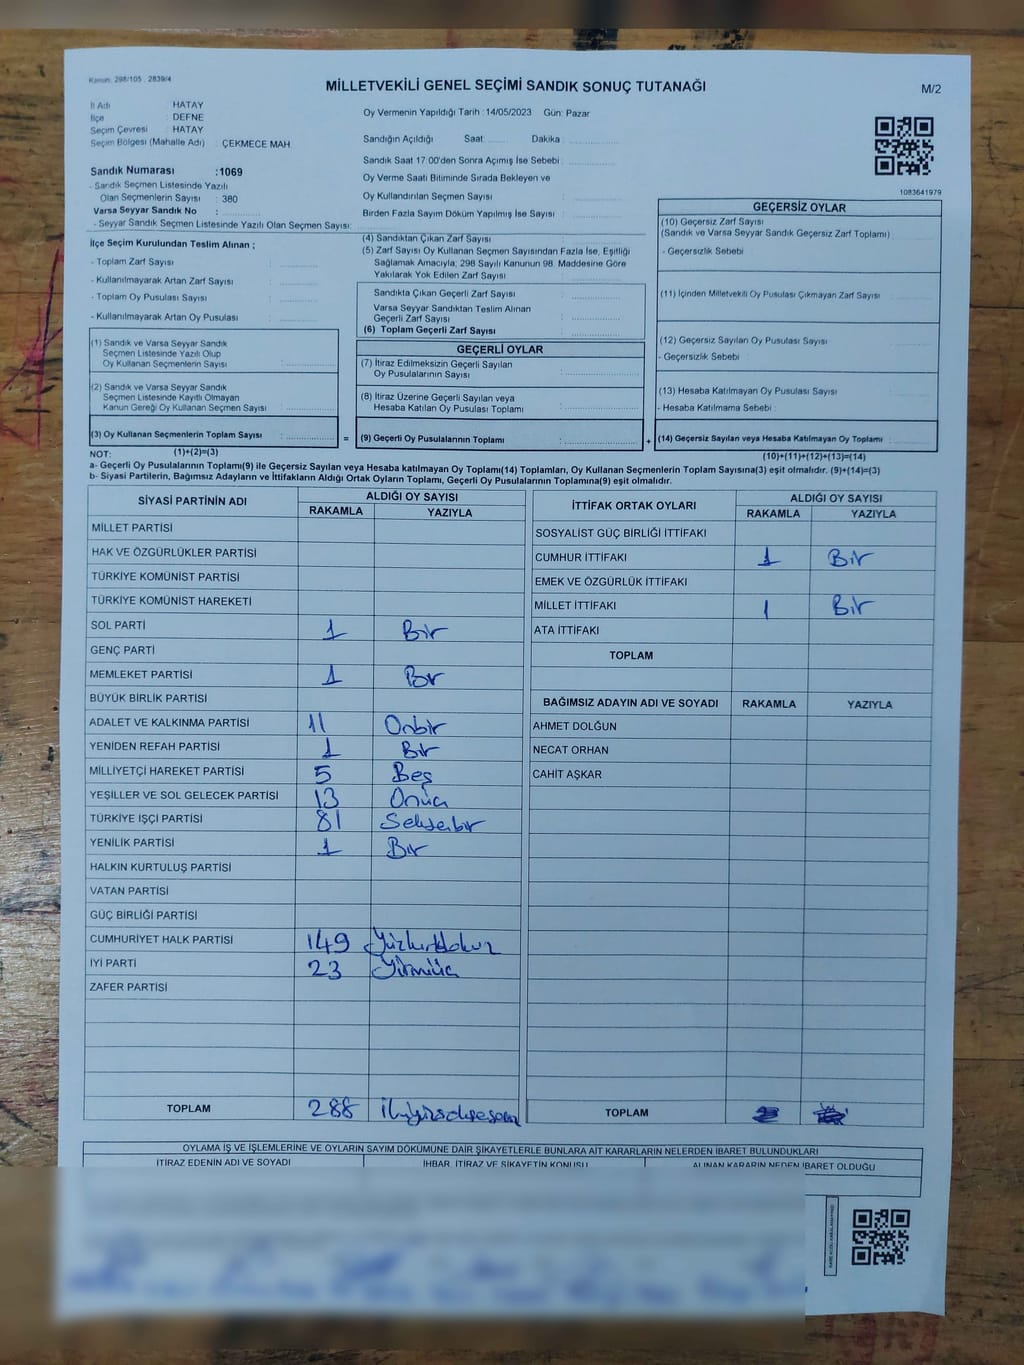 Kanun: 298/105 . 2839/4
MİLLETVEKİLİ GENEL SEÇİMİ SANDIK SONUÇ TUTANAĞI
M/2
İl Adı : HATAY
İlçe : DEFNE
Seçim Çevresi : HATAY
Seçim Bölgesi (Mahalle Adı) : ÇEKMECE MAH.
Sandık Numarası :1069
- Sandık Seçmen Listesinde Yazılı
Olan Seçmenlerin Sayısı : 380
Varsa Seyyar Sandık No :
- Seyyar Sandık Seçmen Listesinde Yazılı Olan Seçmen Sayısı:
Oy Vermenin Yapıldığı Tarih : 14/05/2023 Gün: Pazar
Sandığın Açıldığı Saat: Dakika :
Sandık Saat 17:00'den Sonra Açımış İse Sebebi :
Oy Verme Saati Bitiminde Sırada Bekleyen ve
Oy Kullandırılan Seçmen Sayısı :
Birden Fazla Sayım Döküm Yapılmış İse Sayısı :
1083641979
İlçe Seçim Kurulundan Teslim Alınan ;
- Toplam Zarf Sayısı :
- Kullanılmayarak Artan Zarf Sayısı :
- Toplam Oy Pusulası Sayısı :
- Kullanılmayarak Artan Oy Pusulası :
(1) Sandık ve Varsa Seyyar Sandık
Seçmen Listesinde Yazılı Olup
Oy Kullanan Seçmenlerin Sayısı :
(2) Sandık ve Varsa Seyyar Sandık
Seçmen Listesinde Kayıtlı Olmayan
Kanun Gereği Oy Kullanan Seçmen Sayısı :
(3) Oy Kullanan Seçmenlerin Toplam Sayısı :
(4) Sandıktan Çıkan Zarf Sayısı :
(5) Zarf Sayısı Oy Kullanan Seçmen Sayısından Fazla İse, Eşitliği
Sağlamak Amacıyla; 298 Sayılı Kanunun 98. Maddesine Göre
Yakılarak Yok Edilen Zarf Sayısı :
Sandıkta Çıkan Geçerli Zarf Sayısı :
Varsa Seyyar Sandıktan Teslim Alınan
Geçerli Zarf Sayısı :
(6) Toplam Geçerli Zarf Sayısı :
GEÇERLİ OYLAR
(7) İtiraz Edilmeksizin Geçerli Sayılan
Oy Pusulalarının Sayısı :
(8) İtiraz Üzerine Geçerli Sayılan veya
Hesaba Katılan Oy Pusulası Toplamı :
= (9) Geçerli Oy Pusulalarının Toplamı :
GEÇERSİZ OYLAR
(10) Geçersiz Zarf Sayısı
(Sandık ve Varsa Seyyar Sandık Geçersiz Zarf Toplamı) :
- Geçersizlik Sebebi :
(11) İçinden Milletvekili Oy Pusulası Çıkmayan Zarf Sayısı :
(12) Geçersiz Sayılan Oy Pusulası Sayısı :
- Geçersizlik Sebebi :
(13) Hesaba Katılmayan Oy Pusulası Sayısı :
- Hesaba Katılmama Sebebi :
+ (14) Geçersiz Sayılan veya Hesaba Katılmayan Oy Toplamı :
NOT: (1)+(2)=(3) (10)+(11)+(12)+(13)=(14)
a- Geçerli Oy Pusulalarının Toplamı(9) ile Geçersiz Sayılan veya Hesaba katılmayan Oy Toplamı(14) Toplamları, Oy Kullanan Seçmenlerin Toplam Sayısına(3) eşit olmalıdır. (9)+(14)=(3)
b- Siyasi Partilerin, Bağımsız Adayların ve İttifakların Aldığı Ortak Oyların Toplamı, Geçerli Oy Pusulalarının Toplamına(9) eşit olmalıdır.
SİYASİ PARTİNİN ADI ALDIĞI OY SAYISI
RAKAMLA YAZIYLA
MİLLET PARTİSİ
HAK VE ÖZGÜRLÜKLER PARTİSİ
TÜRKİYE KOMÜNİST PARTİSİ
TÜRKİYE KOMÜNİST HAREKETİ
SOL PARTİ 1 Bir
GENÇ PARTİ
MEMLEKET PARTİSİ 1 Bir
BÜYÜK BİRLİK PARTİSİ
ADALET VE KALKINMA PARTİSİ 11 Onbir
YENİDEN REFAH PARTİSİ 1 Bir
MİLLİYETÇİ HAREKET PARTİSİ 5 Beş
YEŞİLLER VE SOL GELECEK PARTİSİ 13 Onüç
TÜRKİYE İŞÇİ PARTİSİ 81 Seksenbir
YENİLİK PARTİSİ 1 Bir
HALKIN KURTULUŞ PARTİSİ
VATAN PARTİSİ
GÜÇ BİRLİĞİ PARTİSİ
CUMHURİYET HALK PARTİSİ 149 Yüzkırkdokuz
İYİ PARTİ 23 Yirmiüç
ZAFER PARTİSİ
TOPLAM 288
İTTİFAK ORTAK OYLARI ALDIĞI OY SAYISI
RAKAMLA YAZIYLA
SOSYALİST GÜÇ BİRLİĞİ İTTİFAKI
CUMHUR İTTİFAKI 1 Bir
EMEK VE ÖZGÜRLÜK İTTİFAKI
MİLLET İTTİFAKI 1 Bir
ATA İTTİFAKI
TOPLAM
BAĞIMSIZ ADAYIN ADI VE SOYADI RAKAMLA YAZIYLA
AHMET DOLĞUN
NECAT ORHAN
CAHİT AŞKAR
TOPLAM
OYLAMA İŞ VE İŞLEMLERİNE VE OYLARIN SAYIM DÖKÜMÜNE DAİR ŞİKAYETLERLE BUNLARA AİT KARARLARIN NELERDEN İBARET BULUNDUKLARI
İTİRAZ EDENİN ADI VE SOYADI İHBAR, İTİRAZ VE ŞİKAYETİN KONUSU ALINAN KARARIN NEDEN İBARET OLDUĞU